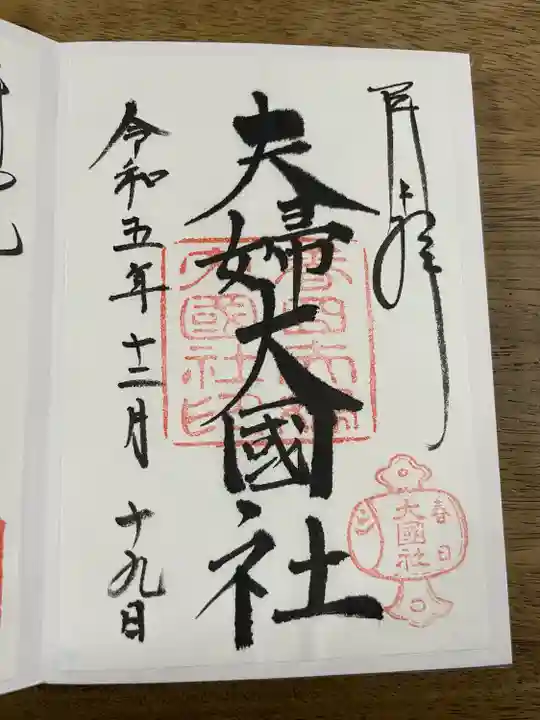 奉拝
夫婦大國社
令和五年十二月十九日
春日
大國社